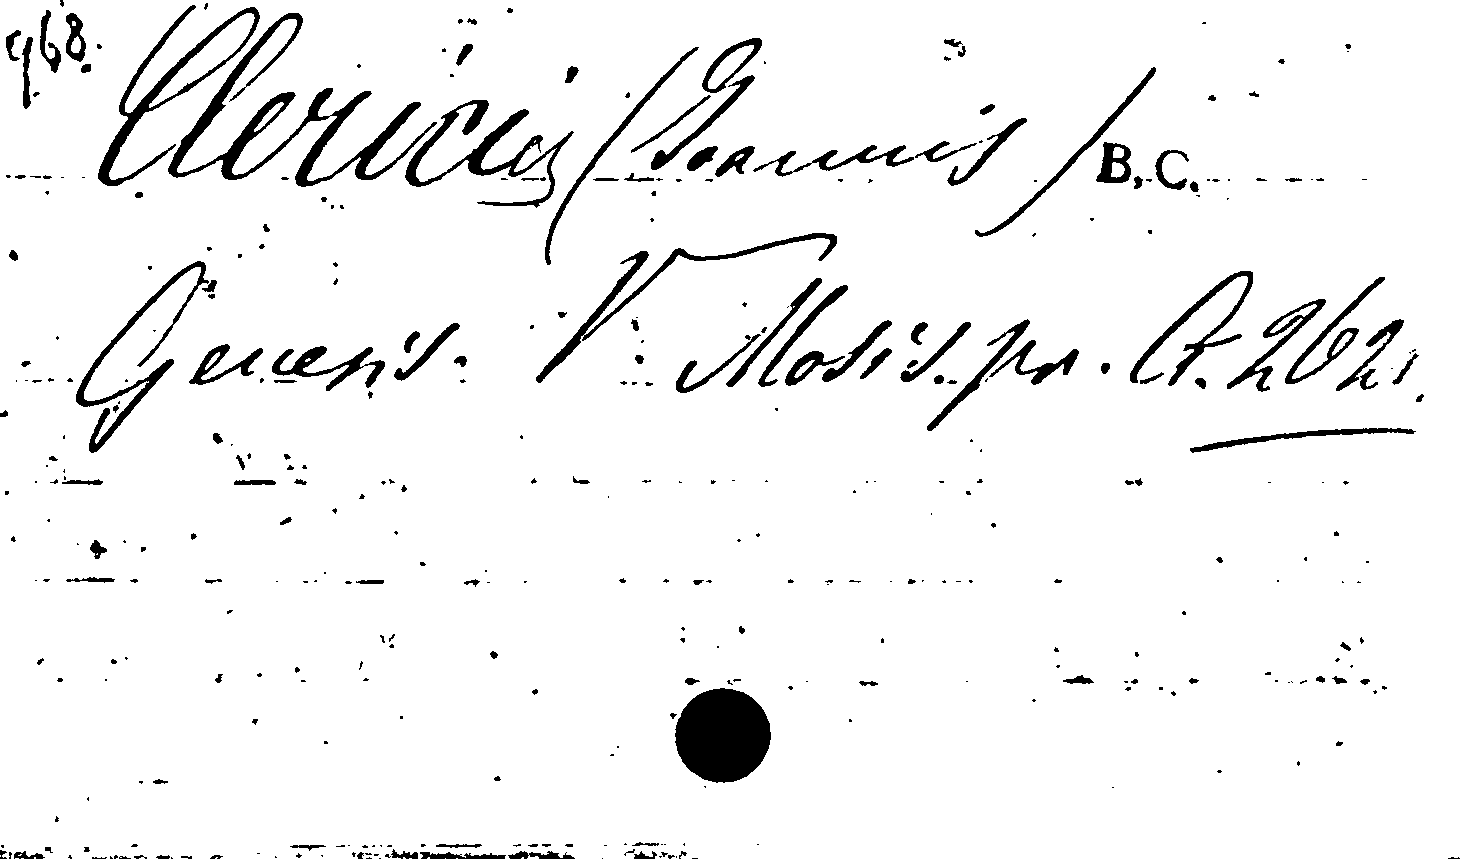 968.
Clericus (Joannis) B.C.
Genesis. V. Mosis. pr. A. 262.